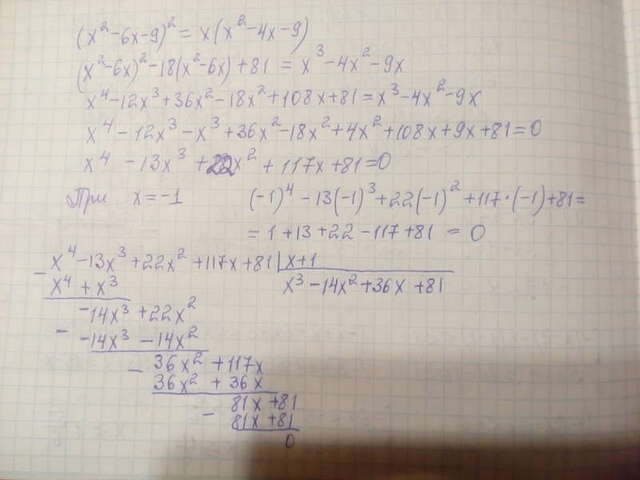 (x²-6x-9)² = x(x²-4x-9)
(x²-6x)²-18(x²-6x)+81 = x³-4x²-9x
x⁴-12x³+36x²-18x²+108x+81=x³-4x²-9x
x⁴-12x³-x³+36x²-18x²+4x²+108x+9x+81=0
x⁴-13x³+22x²+117x+81=0
При x=-1 (-1)⁴-13(-1)³+22(-1)²+117·(-1)+81=
= 1+13+22-117+81 = 0
- x⁴-13x³+22x²+117x+81 | x+1
x⁴+x³ x³-14x²+36x+81
-14x³+22x²
- -14x³-14x²
- 36x²+117x
36x²+36x
- 81x+81
81x+81
0